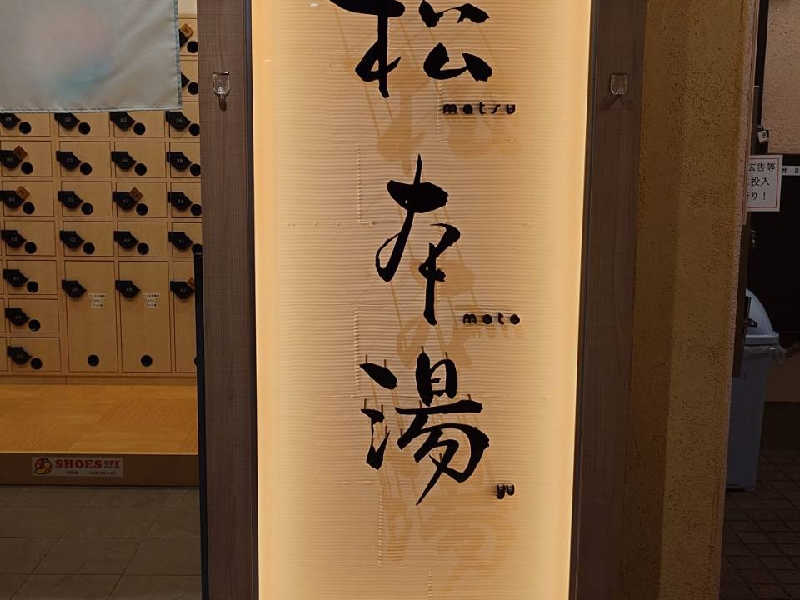 松
matsu
本
moto
湯
yu
SHOES
広告等
投入
り！